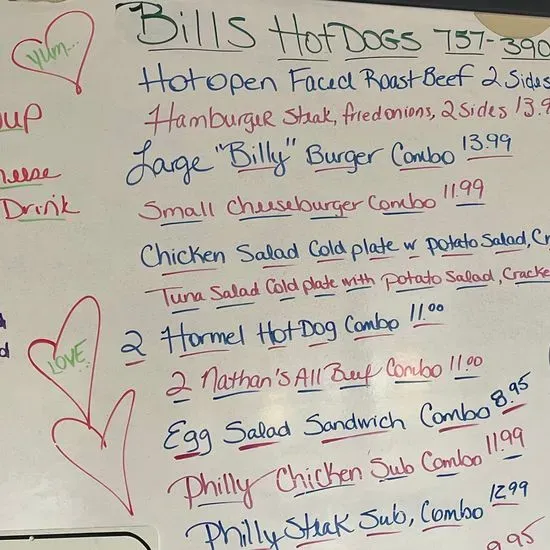 Bills HotDOGS 757-390
Hot open Faced Roast Beef 2 Sides
Hamburger Steak, fried onions, 2 sides 13.9
Large "Billy" Burger Combo 13.99
Small Cheeseburger Combo 11.99
Chicken Salad Cold plate w potato Salad, Cr
Tuna Salad Cold plate with potato Salad, Cracke
2 Hormel Hot Dog Combo 11.00
2 Nathan's All Beef Combo 11.00
Egg Salad Sandwich Combo 8.95
Philly Chicken Sub Combo 11.99
Philly Steak Sub, Combo 12.99
9.95
yum...
oup
heese
Drink
d
LOVE